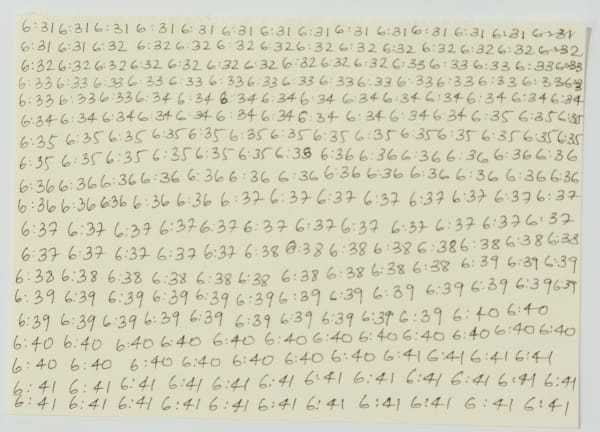 6:31 6:31 6:31 6:31 6:31 6:31 6:31 6:31 6:31 6:31 6:31 6:31 6:31 6:31
6:31 6:31 6:32 6:32 6:32 6:32 6:32 6:32 6:32 6:32 6:32 6:32 6:32 6:32
6:32 6:32 6:32 6:32 6:32 6:32 6:32 6:32 6:32 6:32 6:33 6:33 6:33 6:33 6:33
6:33 6:33 6:33 6:33 6:33 6:33 6:33 6:33 6:33 6:33 6:33 6:33 6:33 6:33 6:33
6:33 6:33 6:33 6:34 6:34 6:34 6:34 6:34 6:34 6:34 6:34 6:34 6:34 6:34
6:34 6:34 6:34 6:34 6:34 6:34 6:34 6:34 6:34 6:34 6:34 6:35 6:35 6:35
6:35 6:35 6:35 6:35 6:35 6:35 6:35 6:35 6:35 6:35 6:35 6:35 6:35 6:35
6:35 6:35 6:35 6:35 6:35 6:35 6:35 6:36 6:36 6:36 6:36 6:36 6:36
6:36 6:36 6:36 6:36 6:36 6:36 6:36 6:36 6:36 6:36 6:36 6:36 6:36 6:36
6:36 6:36 6:36 6:36 6:36 6:37 6:37 6:37 6:37 6:37 6:37 6:37 6:37
6:37 6:37 6:37 6:37 6:37 6:37 6:37 6:37 6:37 6:37 6:37 6:37
6:37 6:37 6:37 6:37 6:37 6:38 6:38 6:38 6:38 6:38 6:38 6:38 6:38
6:38 6:38 6:38 6:38 6:38 6:38 6:38 6:38 6:38 6:38 6:39 6:39 6:39
6:39 6:39 6:39 6:39 6:39 6:39 6:39 6:39 6:39 6:39 6:39 6:39 6:39
6:39 6:39 6:39 6:39 6:39 6:39 6:39 6:39 6:39 6:39 6:40 6:40
6:40 6:40 6:40 6:40 6:40 6:40 6:40 6:40 6:40 6:40 6:40 6:40
6:40 6:40 6:40 6:40 6:40 6:40 6:40 6:41 6:41 6:41 6:41 6:41
6:41 6:41 6:41 6:41 6:41 6:41 6:41 6:41 6:41 6:41 6:41 6:41
6:41 6:41 6:41 6:41 6:41 6:41 6:41 6:41 6:41 6:41 6:41